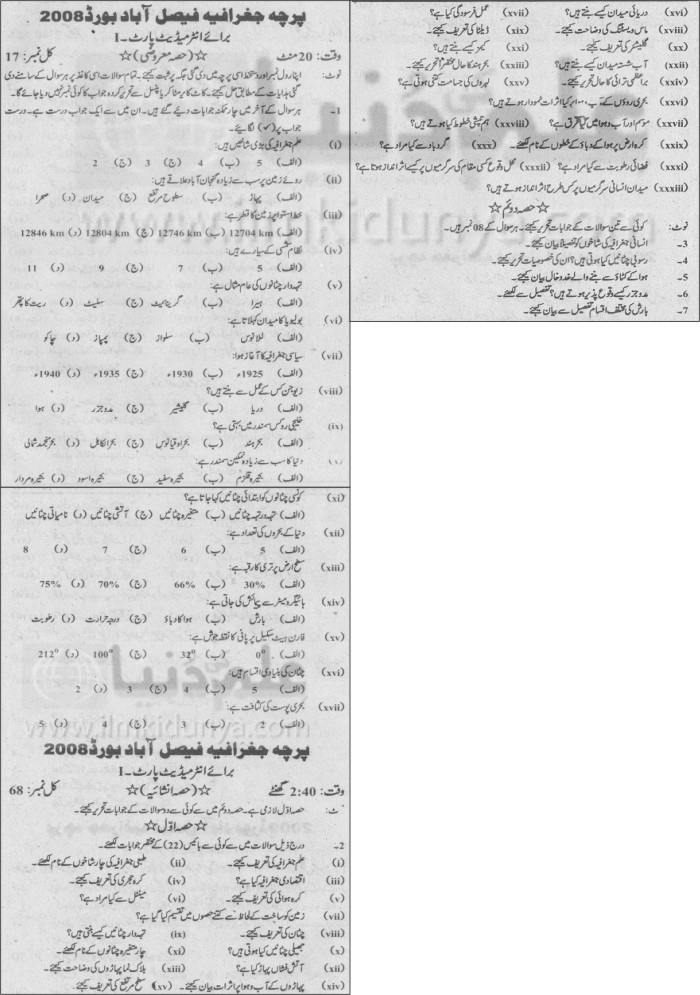 پرچہ جغرافیہ فیصل آباد بورڈ 2008
برائے انٹرمیڈیٹ پارٹ ۔ I
وقت: 20 منٹ ☆(حصہ معروضی)☆ کل نمبر: 17
نوٹ:
1- ہر سوال کے آخر میں چار ممکنہ جوابات دیئے گئے ہیں۔ ان میں سے ایک جواب درست ہے۔ درست
جواب پر (✓) لگائیے۔
(i) علم جغرافیہ کی بڑی شاخیں ہیں:
(الف) 5 (ب) 4 (ج) 3 (د) 2
(ii) روئے زمین پر سب سے زیادہ گنجان آباد علاقے ہیں:
(الف) پہاڑ (ب) سطوح مرتفع (ج) میدان (د) صحرا
(iii) خط استوا پر زمین کا قطر ہے:
(الف) 12704 km (ب) 12746 km (ج) 12804 km (د) 12846 km
(iv) نظام شمسی کے سیارے ہیں:
(الف) 5 (ب) 7 (ج) 9 (د) 11
(v) تہہ دار چٹانوں کی عام مثال ہے:
(الف) ہیرا (ب) گرینائیٹ (ج) سلیٹ (د) ریت کا پتھر
(vi) بولیویا کا میدان کہلاتا ہے:
(الف) للانوس (ب) سلواز (ج) پمپاز (د) چاکو
(vii) سیاسی جغرافیہ کا آغاز ہوا:
(الف) 1925ء (ب) 1930ء (ج) 1935ء (د) 1940ء
(viii) زیوجن کس کے عمل سے بنتے ہیں؟
(الف) دریا (ب) گلیشیر (ج) مدوجزر (د) ہوا
(ix) خلیجی رو کس سمندر میں بہتی ہے؟
(الف) بحرہند (ب) بحر اوقیانوس (ج) بحرالکاہل (د) بحر منجمد شمالی
دنیا کا سب سے زیادہ نمکین سمندر ہے:
(الف) بحیرہ قلزم (ب) بحیرہ سفید (ج) بحیرہ اسود (د) بحیرہ مردار
(xi) کونسی چٹانوں کو ابتدائی چٹانیں کہا جاتا ہے؟
(الف) تہہ در تہہ چٹانیں (ب) متغیرہ چٹانیں (ج) آتشی چٹانیں (د) نامیاتی چٹانیں
(xii) دنیا کے بحروں کی تعداد ہے:
(الف) 5 (ب) 6 (ج) 7 (د) 8
(xiii) سطح ارض پر تری کا رقبہ ہے:
(الف) 30% (ب) 66% (ج) 70% (د) 75%
(xiv) ہائیگرومیٹر سے پیمائش کی جاتی ہے:
(الف) بارش (ب) ہوا کا دباؤ (ج) درجہ حرارت (د) رطوبت
(xv) فارن ہیٹ سکیل پر پانی کا نقطہ جوش ہے:
(الف) 0° (ب) 32° (ج) 100° (د) 212°
(xvi) چٹان کی بنیادی اقسام ہیں:
(الف) 5 (ب) 4 (ج) 3 (د) 2
(xvii) بحری پوست کی کثافت ہے:
(الف) 2 (ب) 3 (ج) 4 (د) 5
پرچہ جغرافیہ فیصل آباد بورڈ 2008
برائے انٹرمیڈیٹ پارٹ ۔ I
وقت: 2:40 گھنٹے ☆(حصہ انشائیہ)☆ کل نمبر: 68
ٹ: حصہ اوّل لازمی ہے۔ حصہ دوئم میں سے کوئی سے دو سوالات کے جوابات تحریر کیجئے۔
☆حصہ اوّل☆
2- درج ذیل سوالات میں سے کوئی سے بائیس (22) کے مختصر جوابات لکھئے۔
(i) علم جغرافیہ کی تعریف کیجئے۔ (ii) طبعی جغرافیہ کی چار شاخوں کے نام لکھئے۔
(iii) اقتصادی جغرافیہ کیا ہے؟ (iv) کرہ حجری کی تعریف کیجئے۔
(v) کرہ ہوائی کی تعریف کیجئے۔ (vi) مینٹل سے کیا مراد ہے؟
(vii) زمین کو ساخت کے لحاظ سے کتنے حصوں میں تقسیم کیا گیا ہے؟
(viii) چٹان کی تعریف کیجئے۔ (ix) تہہ دار چٹانیں کیسے بنتی ہیں؟
(x) جھیلی چٹانیں کیا ہوتی ہیں؟ (xi) چار متغیرہ چٹانوں کے نام لکھئے۔
(xii) آتش فشاں پہاڑ کیا ہے؟ (xiii) بلاک نما پہاڑوں کی وضاحت کیجئے۔
(xiv) پہاڑوں کے آب و ہوا پر اثرات بیان کیجئے۔ (xv) سطح مرتفع کی تعریف کیجئے۔
(xvi) دریائی میدان کیسے بنتے ہیں؟ (xvii) عمل فرسودگی کیا ہے؟
(xviii) ماس ویسٹنگ کی وضاحت کیجئے۔ (xix) ڈیلٹا کی تعریف کیجئے۔
(xx) گلیشیر کی تعریف کیجئے۔ (xxi) کیمز کیسے بنتے ہیں؟
(xxii) آب شستہ میدان کیسے بنتے ہیں؟ بحر ہند کا حال مختصراً تحریر کیجئے۔
(xxiv) براعظمی ترائی کا حال تحریر کیجئے۔ (xxv) لہروں کی جسامت کتنی ہوتی ہے؟
(xxvi) بحری روؤں کے آب و ہوا پر کیا اثرات نمودار ہوتے ہیں؟
(xxvii) موسم اور آب و ہوا میں کیا فرق ہے؟ (xxviii) ہم تپشی خطوط کیا ہوتے ہیں؟
(xxix) کرہ ارض پر ہوا کے دباؤ کے خطوں کے نام لکھئے۔ (xxx) گردباد سے کیا مراد ہے؟
(xxxi) فضائی رطوبت سے کیا مراد ہے؟ (xxxii) محل وقوع کسی مقام کی سرگرمیوں پر کیسے اثر انداز ہوتا ہے؟
(xxxiii) میدان انسانی سرگرمیوں پر کس طرح اثر انداز ہوتے ہیں؟
☆حصہ دوئم☆
نوٹ: کوئی سے تین سوالات کے جوابات تحریر کیجئے۔ ہر سوال کے 08 نمبر ہیں۔
3- انسانی جغرافیہ کی شاخوں کو تفصیلاً بیان کیجئے۔
4- رسوبی چٹانیں کیا ہوتی ہیں؟ ان کی خصوصیات تحریر کیجئے۔
5- ہوا کے کٹاؤ سے بننے والے خدوخال بیان کیجئے۔
6- مدوجزر کیسے وقوع پذیر ہوتے ہیں؟ تفصیل سے لکھئے۔
7- بارش کی مختلف اقسام تفصیل سے بیان کیجئے۔
علم دنیا
www.ilmkidunya.com